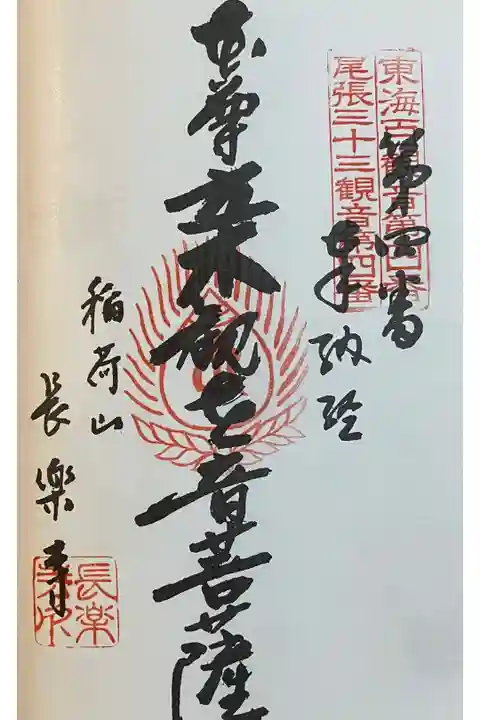 東海百観音第四番
尾張三十三観音第四番
第四番
奉納経
本尊 観世音菩薩
稲荷山
長楽寺
長楽
寺印